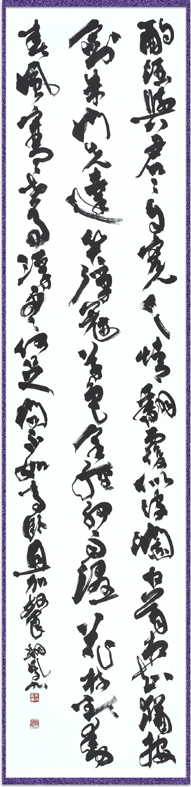 酌酒與君々自寬人情翻覆似波瀾白首相知猶按
劍朱門先達笑彈冠草色全經細雨濕花枝欲動
春風寒世事浮雲何足問不如高臥且加餐